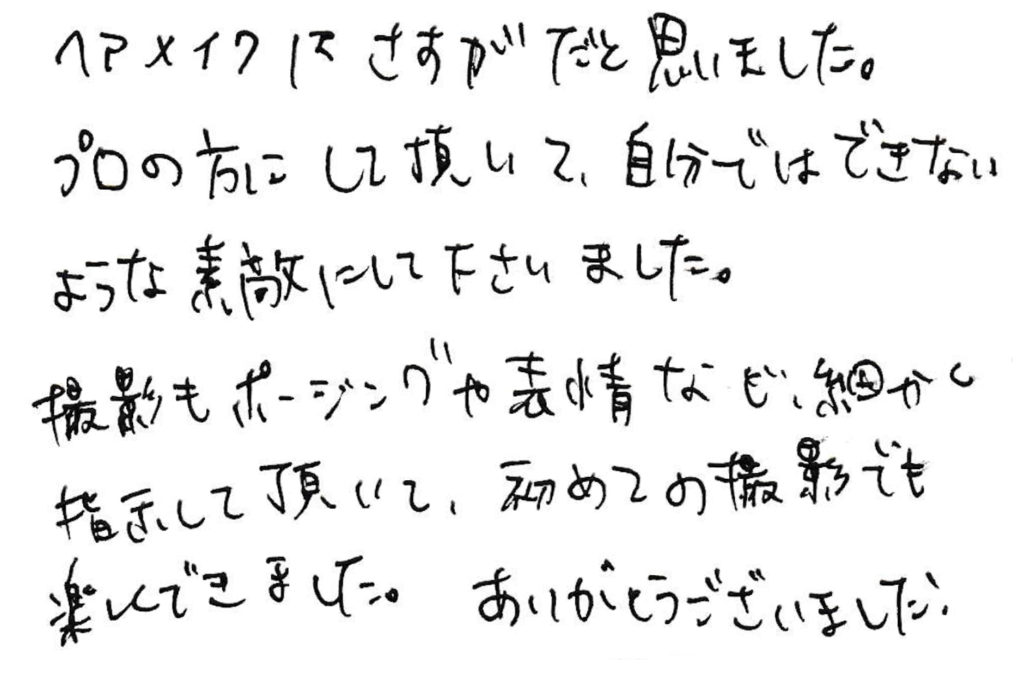 ヘアメイクはさすがだと思いました。
プロの方にして頂いて、自分ではできない
ような素敵にして下さいました。
撮影もポージングや表情など、細かく
指示して頂いて、初めての撮影でも
楽しくできました。ありがとうございました。